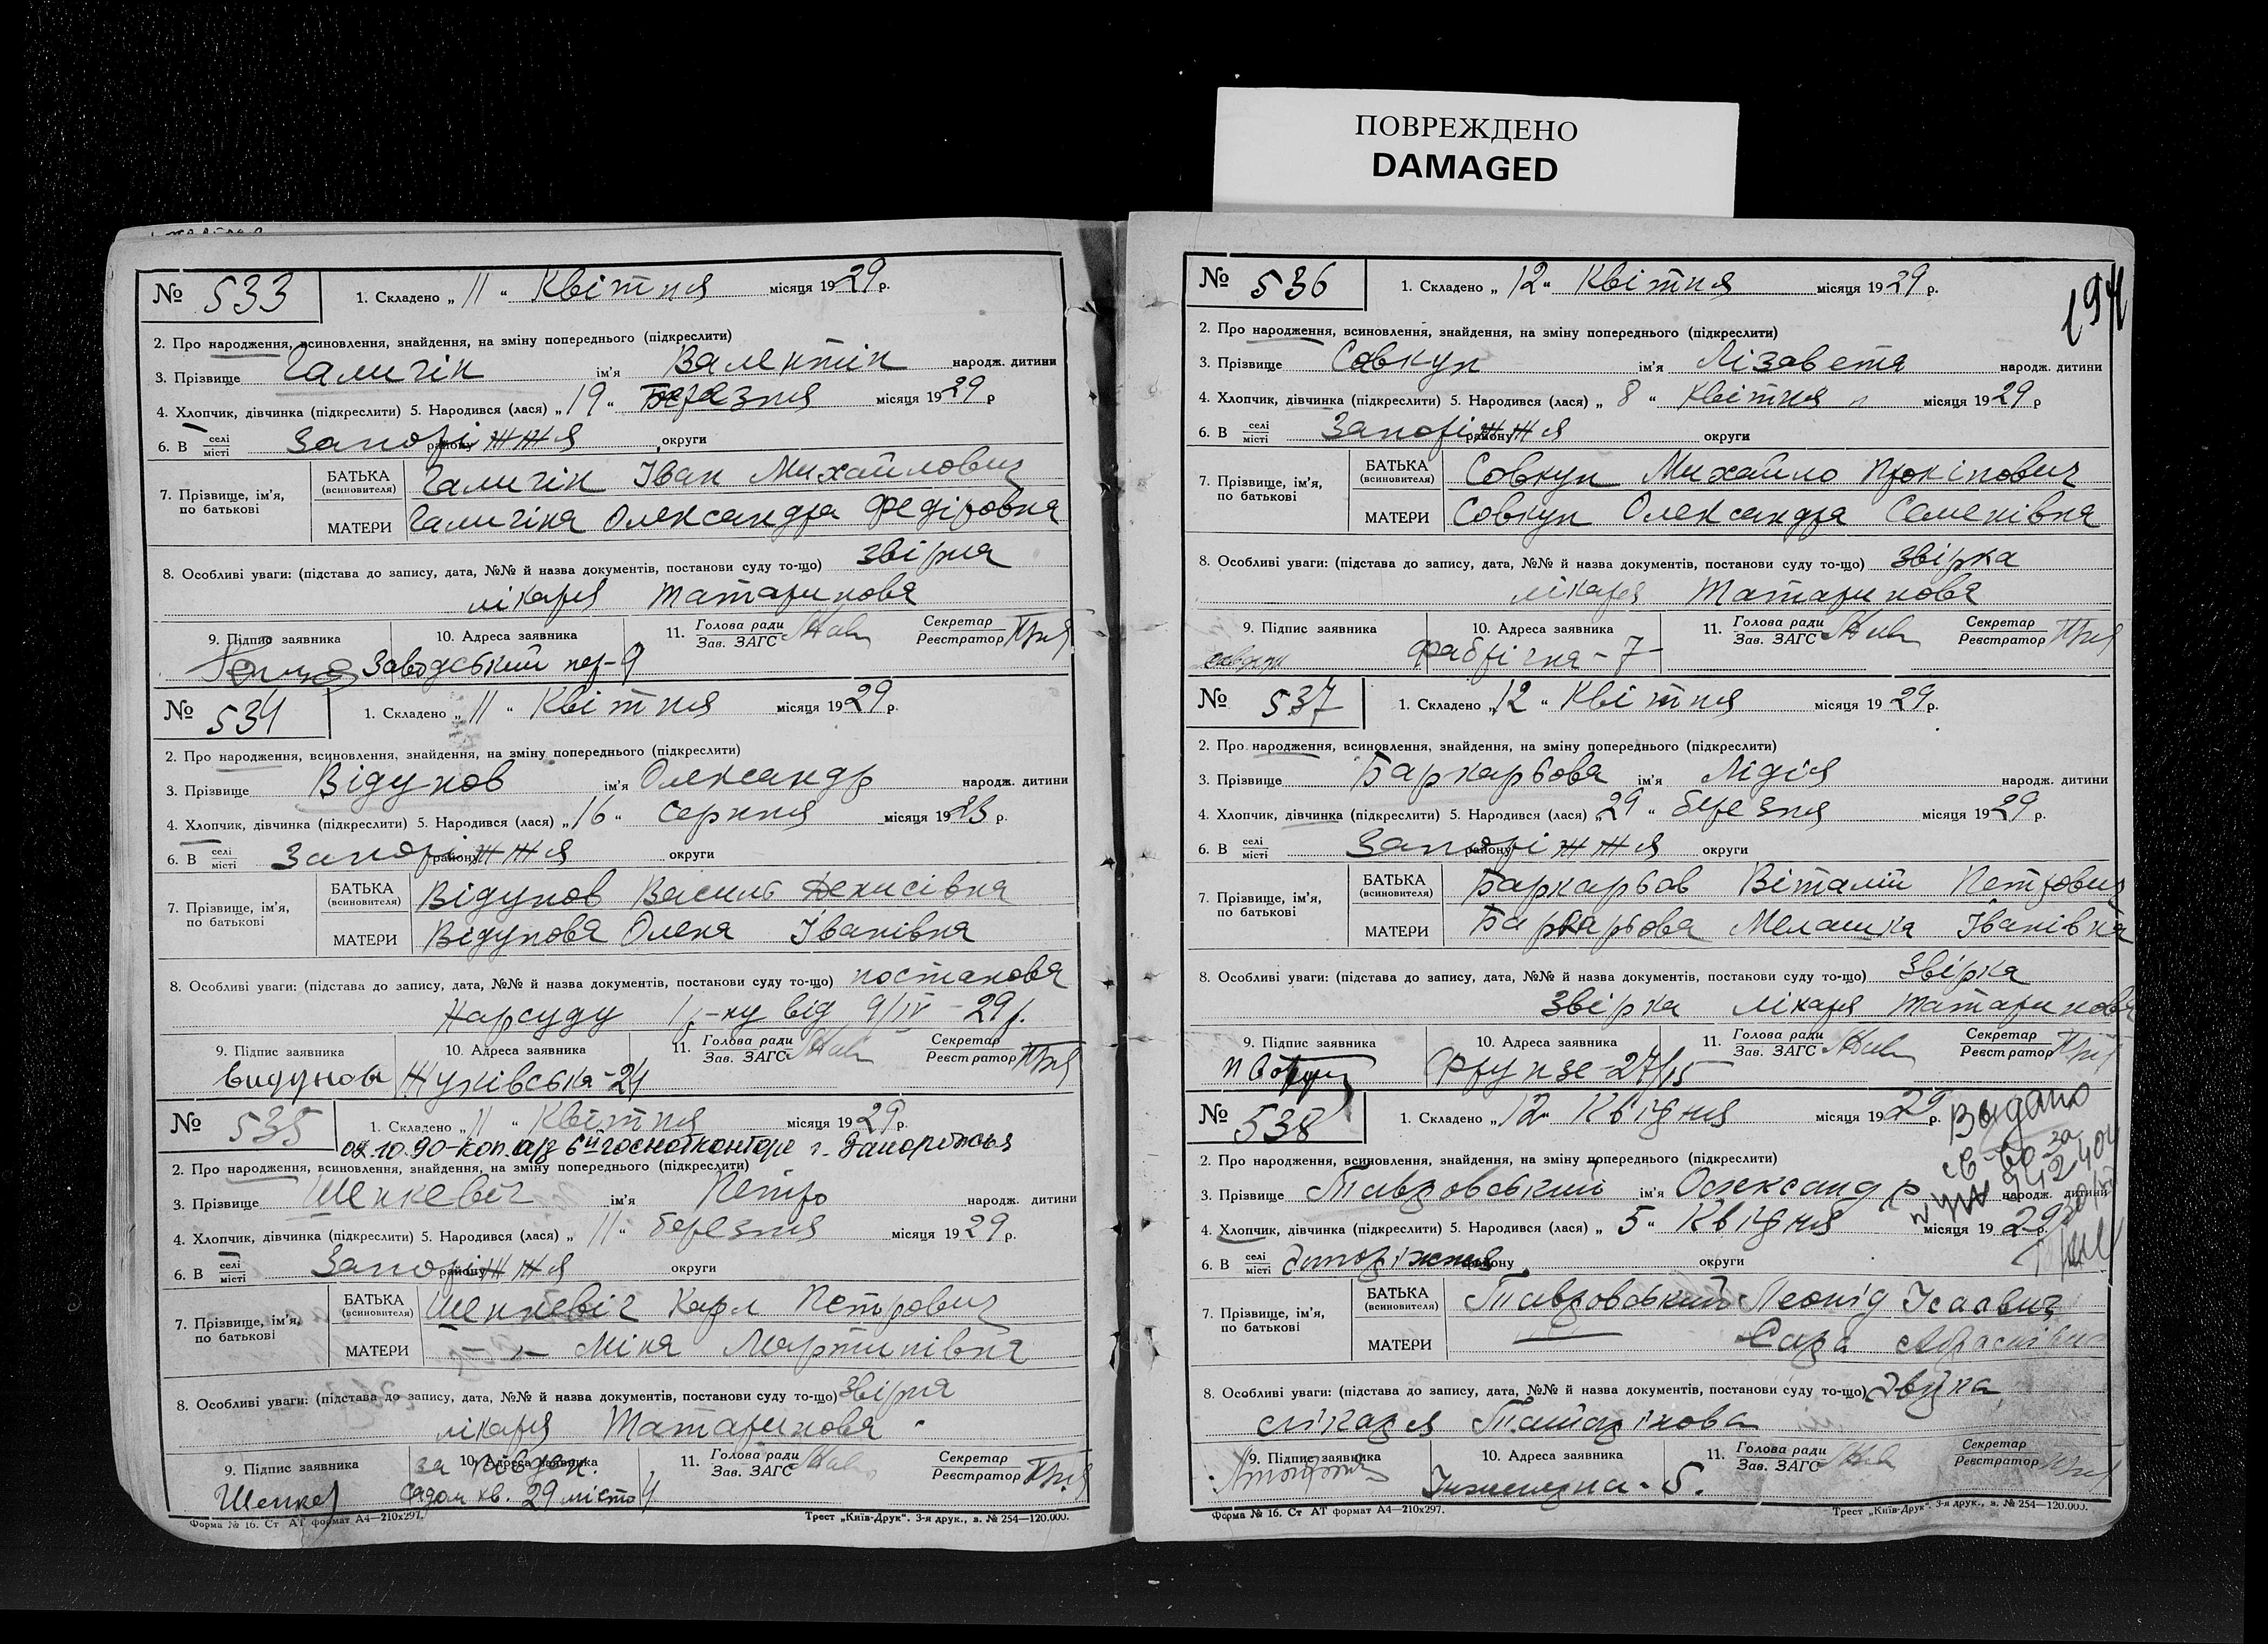 ПОВРЕЖДЕНО
DAMAGED
№ 533
1. Складено „ 11 “ Квітня місяця 1929 р.
2. Про народження, всиновлення, знайдення, на зміну попереднього (підкреслити)
3. Прізвище Галичін ім'я Валентін народж. дитини
4. Хлопчик, дівчинка (підкреслити) 5. Народився (лася) „ 19 “ Березня місяця 1929 р
6. В селі місті Запоріжжя району округи
7. Прізвище, ім'я, по батькові
БАТЬКА (всиновителя) Галичін Іван Михайлович
МАТЕРИ Галичіна Олександра Федіровна
8. Особливі уваги: (підстава до запису, дата, №№ й назва документів, постанови суду то-що) звірка
лікаря Татарикова
9. Підпис заявника 10. Адреса заявника 11. Голова ради Зав. ЗАГС Секретар Реєстратор
Заводський пер-9
№ 534
1. Складено „ 11 “ Квітня місяця 1929 р.
2. Про народження, всиновлення, знайдення, на зміну попереднього (підкреслити)
3. Прізвище Відунов ім'я Олександр народж. дитини
4. Хлопчик, дівчинка (підкреслити) 5. Народився (лася) „ 16 “ серпня місяця 1923 р.
6. В селі місті Запоріжжя району округи
7. Прізвище, ім'я, по батькові
БАТЬКА (всиновителя) Відунов Василь Денисівна
МАТЕРИ Відунова Олена Іванівна
8. Особливі уваги: (підстава до запису, дата, №№ й назва документів, постанови суду то-що) постанова
Нарсуду 1 р-ну від 9/IV-29 р.
9. Підпис заявника 10. Адреса заявника 11. Голова ради Зав. ЗАГС Секретар Реєстратор
Видунов Жуківська-24
№ 535
1. Складено „ 11 “ Квітня місяця 1929 р.
02.10.90-коп. а/з 6ій госнотконторе г. Запорожья
2. Про народження, всиновлення, знайдення, на зміну попереднього (підкреслити)
3. Прізвище Шенкевіч ім'я Петро народж. дитини
4. Хлопчик, дівчинка (підкреслити) 5. Народився (лася) „ 11 “ березня місяця 1929 р.
6. В селі місті Запоріжжя району округи
7. Прізвище, ім'я, по батькові
БАТЬКА (всиновителя) Шенкевіч Карл Петрович
МАТЕРИ —„— Міна Мартинівна
8. Особливі уваги: (підстава до запису, дата, №№ й назва документів, постанови суду то-що) звірка
лікаря Татарикова
9. Підпис заявника 10. Адреса заявника 11. Голова ради Зав. ЗАГС Секретар Реєстратор
за півден.
Шенкев садом кв. 29 місто 4
Форма № 16. Ст АТ формат А4—210х297. Трест „Київ-Друк“. 3-я друк., з. № 254—120.000.
194
№ 536
1. Складено „ 12 “ Квітня місяця 1929 р.
2. Про народження, всиновлення, знайдення, на зміну попереднього (підкреслити)
3. Прізвище Совкун ім'я Лізавета народж. дитини
4. Хлопчик, дівчинка (підкреслити) 5. Народився (лася) „ 8 “ Квітня місяця 1929 р
6. В селі місті Запоріжжя району округи
7. Прізвище, ім'я, по батькові
БАТЬКА (всиновителя) Совкун Михайло Прокіпович
МАТЕРИ Совкун Олександра Семенівна
8. Особливі уваги: (підстава до запису, дата, №№ й назва документів, постанови суду то-що) звірка
лікаря Татарикова
9. Підпис заявника 10. Адреса заявника 11. Голова ради Зав. ЗАГС Секретар Реєстратор
Фабрічна-7-
№ 537
1. Складено „ 12 “ Квітня місяця 1929 р.
2. Про народження, всиновлення, знайдення, на зміну попереднього (підкреслити)
3. Прізвище Баркарьова ім'я Лідія народж. дитини
4. Хлопчик, дівчинка (підкреслити) 5. Народився (лася) „ 29 “ березня місяця 1929 р.
6. В селі місті Запоріжжя району округи
7. Прізвище, ім'я, по батькові
БАТЬКА (всиновителя) Баркарьов Віталій Петрович
МАТЕРИ Баркарьова Мелашка Іванівна
8. Особливі уваги: (підстава до запису, дата, №№ й назва документів, постанови суду то-що) Звірка
Звірка лікаря Татарикова
9. Підпис заявника 10. Адреса заявника 11. Голова ради Зав. ЗАГС Секретар Реєстратор
Фрунзе-27/15
№ 538
1. Складено „ 12 “ Квітня місяця 1929 р.
Видано
св-во за
№ 942404
2. Про народження, всиновлення, знайдення, на зміну попереднього (підкреслити)
3. Прізвище Тавровський ім'я Олександр народж. дитини
4. Хлопчик, дівчинка (підкреслити) 5. Народився (лася) „ 5 “ Квітня місяця 1929 р.
6. В селі місті Запоріжжя району округи
7. Прізвище, ім'я, по батькові
БАТЬКА (всиновителя) Тавровський Леонід Ісаевич
МАТЕРИ — Сара
8. Особливі уваги: (підстава до запису, дата, №№ й назва документів, постанови суду то-що) Звірка
лікаря Татарінова
9. Підпис заявника 10. Адреса заявника 11. Голова ради Зав. ЗАГС Секретар Реєстратор
Інженерна-5.
Форма № 16. Ст АТ формат А4—210х297. Трест „Київ-Друк“. 3-я друк., з. № 254—120.000.